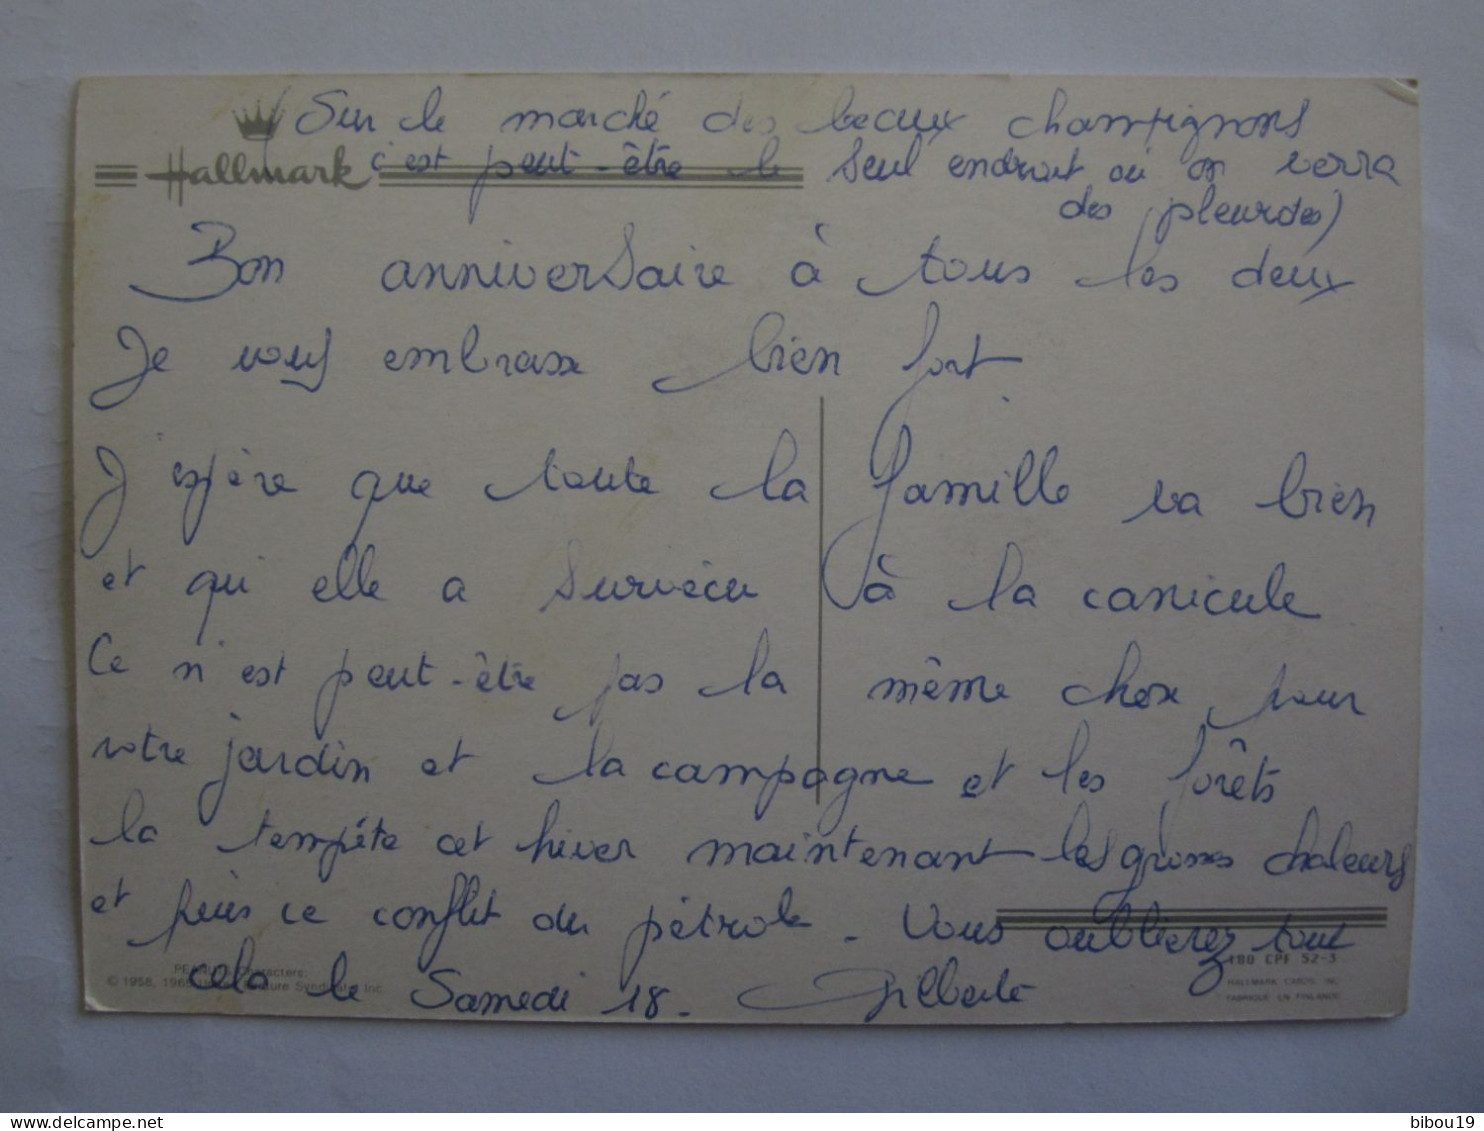 Sur le marché des beaux champignons
Hallmark
c'est peut-être le seul endroit où on verra
des pleurotes)
Bon anniversaire à tous les deux
Je vous embrasse bien fort.
J'espère que toute la famille va bien
et qui elle a survécu à la canicule
Ce n'est peut-être pas la même chose pour
votre jardin et la campagne et les forêts
la tempête cet hiver maintenant les grosses chaleurs
et puis ce conflit du pétrole - Vous oublierez tout
cela le Samedi 18 - Gilberte
180 CPF 52-3
PEANUTS Characters:
© 1958, 1965 Feature Syndicate Inc.
HALLMARK CARDS, INC.
FABRIQUE EN FINLANDE
bibou19